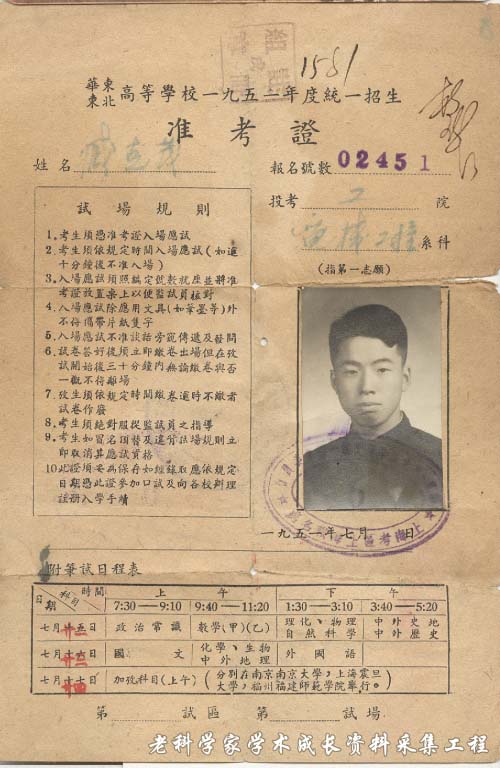 1581
華東
東北 高等學校一九五一年度統一招生
准考證
姓名
報名號數 02451
投考 工 院
系科
(指第一志願)
試場規則
1.考生須憑准考證入場應試
2.考生須依規定時間入場應試(如遲
十分鐘後不准入場)
3.入場應試須照編定號數就座並將准
考證放置桌上以便監試員核對
4.入場應試除應用文具(如筆墨等)外
不得攜帶片紙隻字
5.入場應試不准談話旁窺傳遞及發問
6.試卷答好後須立即繳卷出場但在攷
試開始後三十分鐘內無論繳卷與否
一概不得離場
7.攷生須依規定時間繳卷逾時不繳者
試卷作廢
8.考生須絕對服從監試員之指導
9.考生如冒名頂替及違背試場規則立
即取消其應試資格
10.此證須妥為保存如經錄取應依規定
日期憑此證參加口試及向各校辦理
註册入學手續
一九五一年七月 日
附筆試日程表
日期 科目 時間 上午 下午
7:30—9:10 9:40—11:20 1:30—3:10 3:40—5:20
七月十五日 政治常識 數學(甲)(乙) 理化、物理 自然科學 中外史地 中外歷史
七月十六日 國文 化學、生物 中外地理 外國語
七月十七日 加攷科目(上午) (分別在南京南京大學,上海震旦
大學,福州福建師範學院舉行。)
第 試區 第 試場
老科学家学术成长资料采集工程